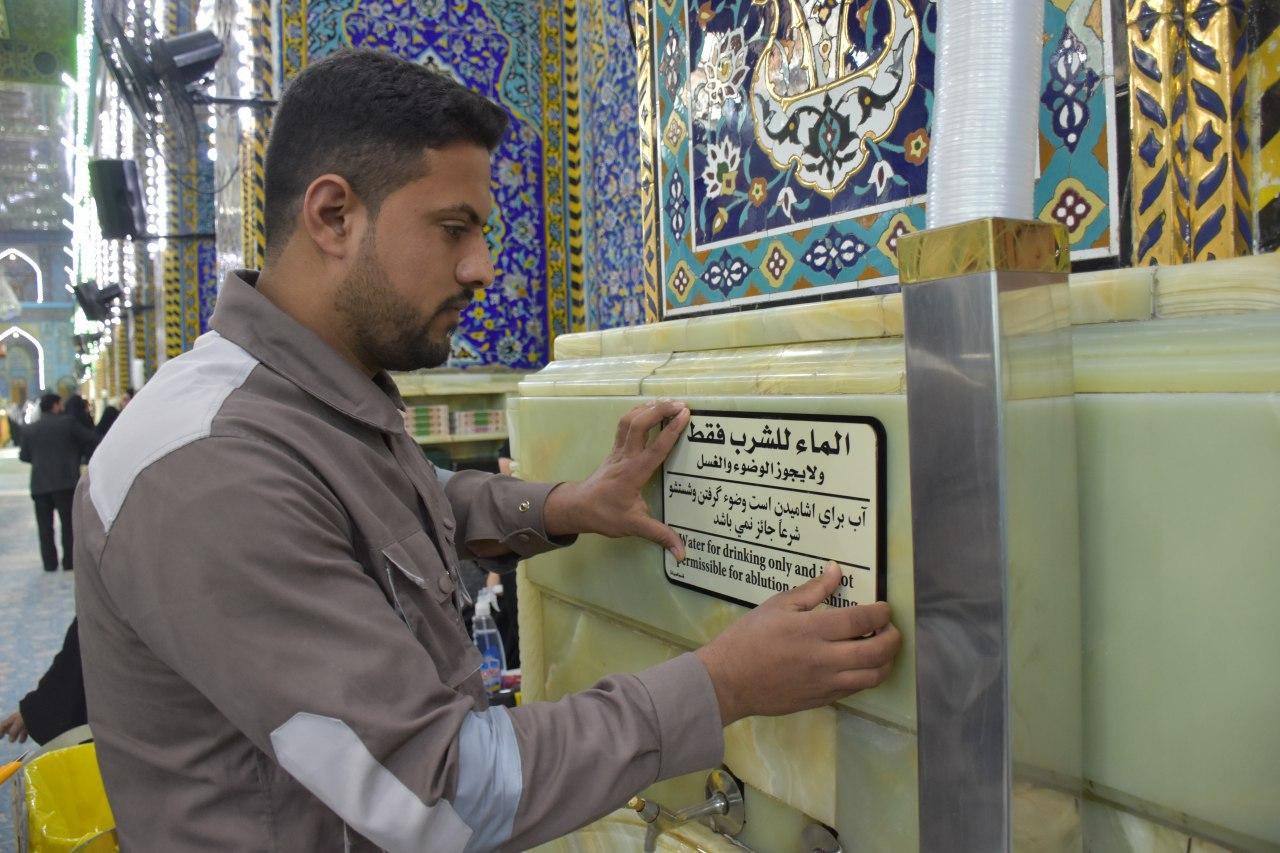 الماء للشرب فقط
ولايجوز الوضوء والغسل
آب براي اشاميدن است وضوء گرفتن وشستشو
شرعاً جائز نمي باشد
Water for drinking only and is not
permissible for ablution